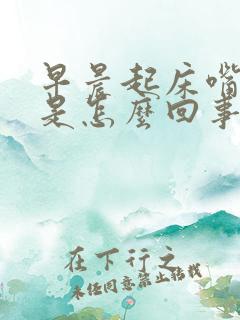 早晨起床嘴
是怎麼回事
在下行之
未经同意禁止转载